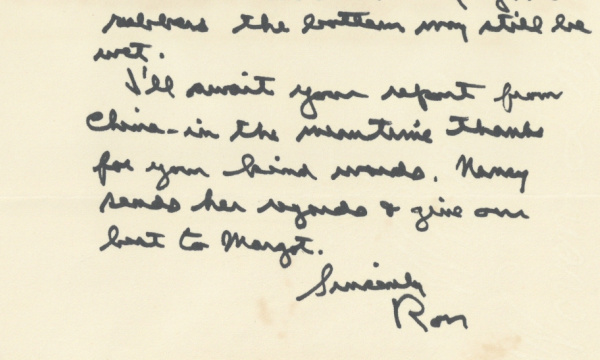 rubbers the bottom may still be
wet.
I'll await your report from
China - in the meantime thanks
for your kind words. Nancy
sends her regards & give our
best to Margot.
Sincerely
Ron